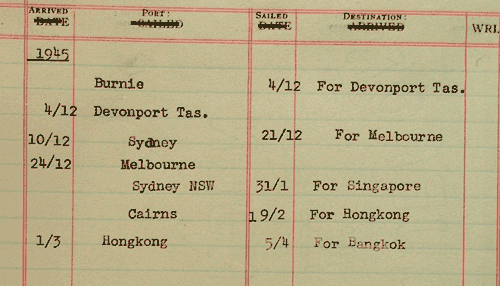 ARRIVED PORT: SAILED DESTINATION:
DATE SAILED DATE ARRIVED WRI
1945
Burnie 4/12 For Devonport Tas.
4/12 Devonport Tas.
10/12 Sydney 21/12 For Melbourne
24/12 Melbourne
Sydney NSW 31/1 For Singapore
Cairns 19/2 For Hongkong
1/3 Hongkong 5/4 For Bangkok